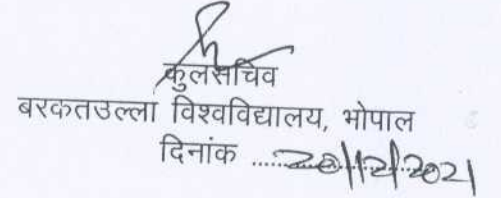 कुलसचिव
बरकतउल्ला विश्वविद्यालय, भोपाल
दिनांक ..........20/12/2021